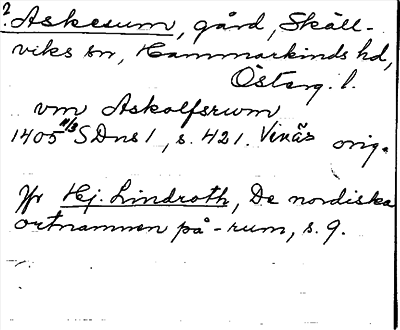 ? Askesum, gård, Skäll-
viks sn, Hammarkinds hd,
Österg. l.
vm Askolfsrum
1405 11/3 SDns 1, s. 421. Vinäs orig.
Jfr Hj. Lindroth, De nordiska
ortnamnen på -rum, s. 9.